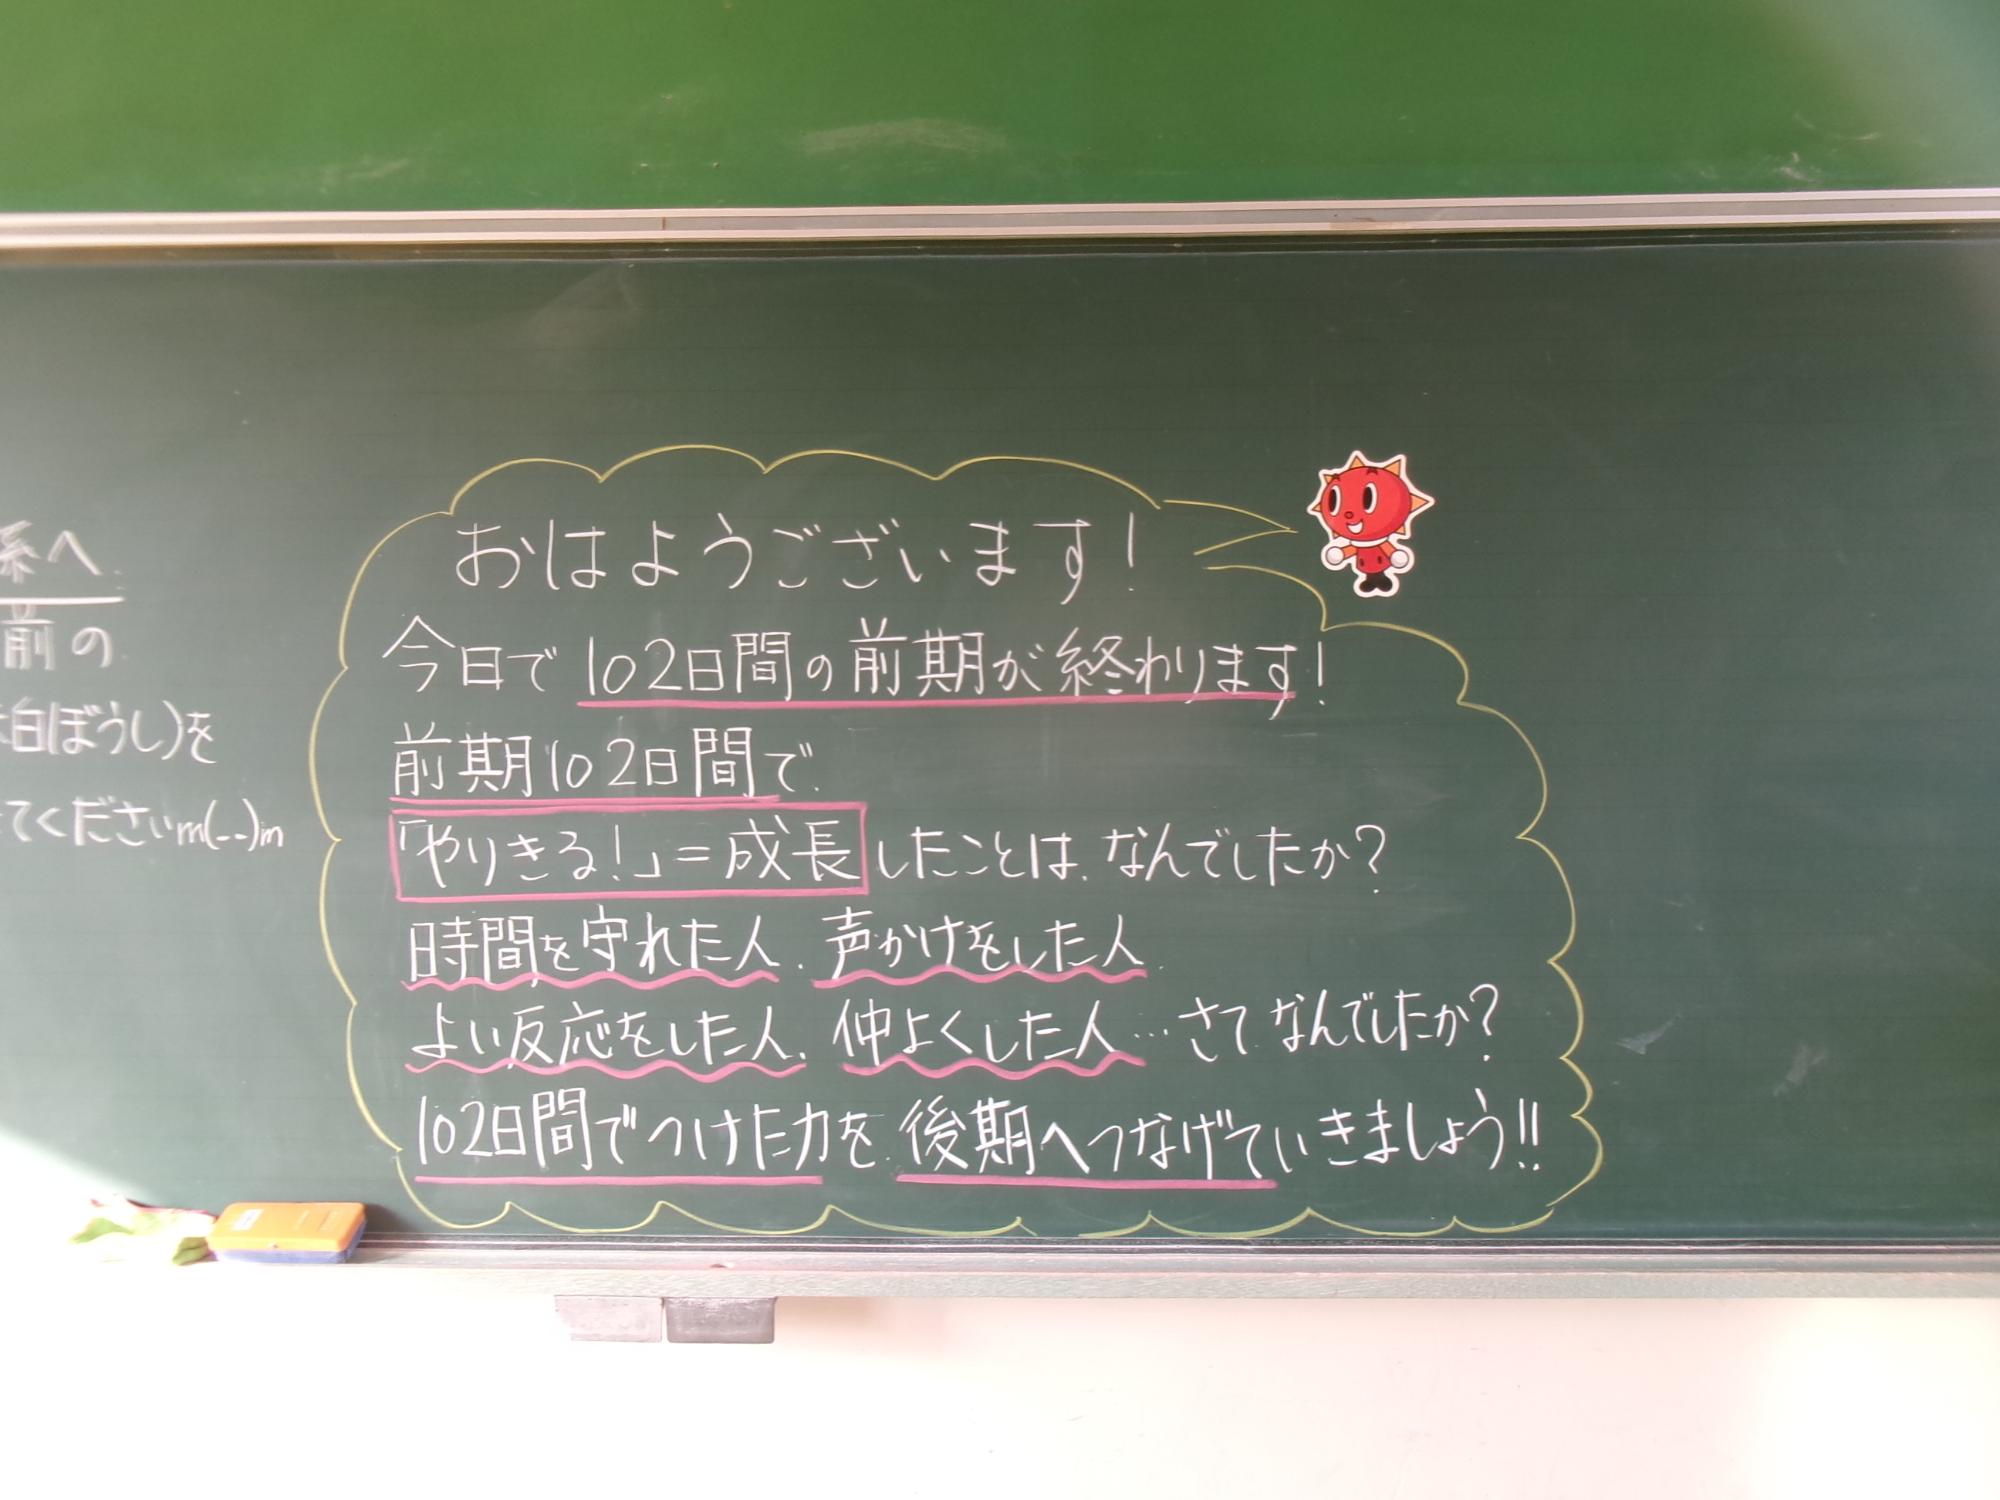 係へ
前の
白ぼうし)を
てくださいm(--)m
おはようございます!
今日で102日間の前期が終わります!
前期102日間で、
「やりきる!」=成長したことは、なんでしたか?
時間を守れた人、声かけをした人、
よい反応をした人、仲よくした人…さて、なんでしたか?
102日間でつけた力を、後期へつなげていきましょう!!